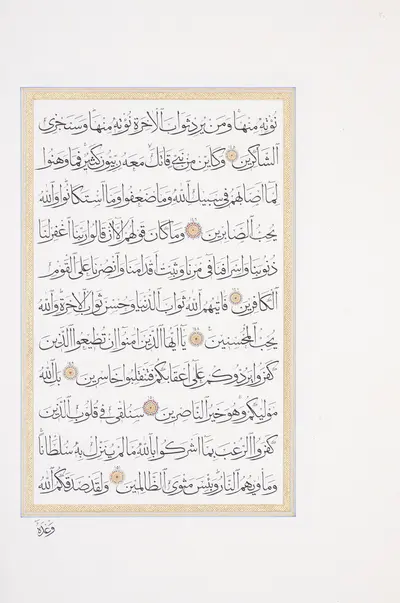 نُؤْتِهِ مِنْهَا وَمَنْ يُرِدْ ثَوَابَ الْاٰخِرَةِ نُؤْتِهِ مِنْهَا وَسَنَجْزِي
الشَّاكِرِينَ وَكَأَيِّنْ مِنْ نَبِيٍّ قَاتَلَ مَعَهُ رِبِّيُّونَ كَثِيرٌ فَمَا وَهَنُوا
لِمَا أَصَابَهُمْ فِي سَبِيلِ اللهِ وَمَا ضَعُفُوا وَمَا اسْتَكَانُوا وَاللهُ
يُحِبُّ الصَّابِرِينَ وَمَا كَانَ قَوْلَهُمْ إِلَّا أَنْ قَالُوا رَبَّنَا اغْفِرْ لَنَا
ذُنُوبَنَا وَإِسْرَافَنَا فِي أَمْرِنَا وَثَبِّتْ أَقْدَامَنَا وَانْصُرْنَا عَلَى الْقَوْمِ
الْكَافِرِينَ فَاٰتٰيهُمُ اللهُ ثَوَابَ الدُّنْيَا وَحُسْنَ ثَوَابِ الْاٰخِرَةِ وَاللهُ
يُحِبُّ الْمُحْسِنِينَ يَا أَيُّهَا الَّذِينَ اٰمَنُوا إِنْ تُطِيعُوا الَّذِينَ
كَفَرُوا يَرُدُّوكُمْ عَلَى أَعْقَابِكُمْ فَتَنْقَلِبُوا خَاسِرِينَ بَلِ اللهُ
مَوْلٰيكُمْ وَهُوَ خَيْرُ النَّاصِرِينَ سَنُلْقِي فِي قُلُوبِ الَّذِينَ
كَفَرُوا الرُّعْبَ بِمَا أَشْرَكُوا بِاللهِ مَا لَمْ يُنَزِّلْ بِهِ سُلْطَانًا
وَمَأْوٰيهُمُ النَّارُ وَبِئْسَ مَثْوَى الظَّالِمِينَ وَلَقَدْ صَدَقَكُمُ اللهُ
وَعْدَهُ